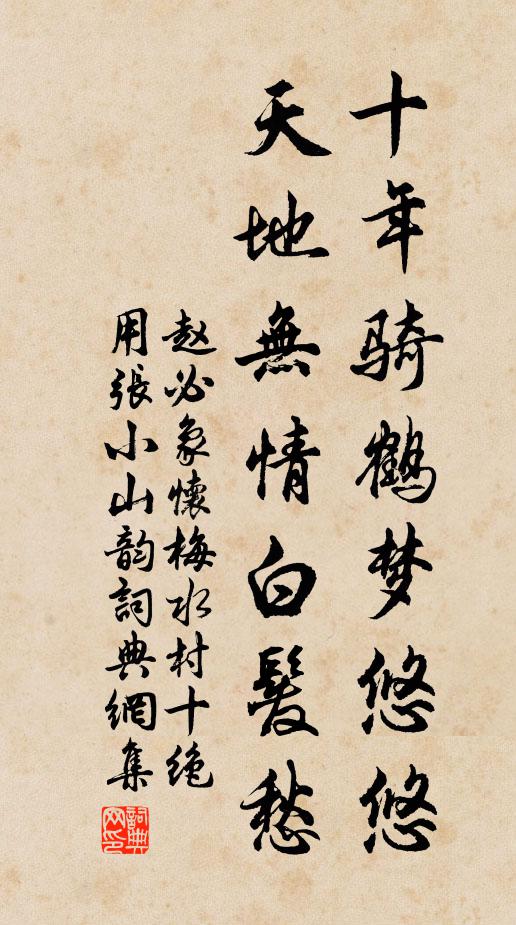 十年骑鹤梦悠悠
天地無情白髮愁
赵必象懷梅水村十绝
用張小山韵詞典網集
詞典网印